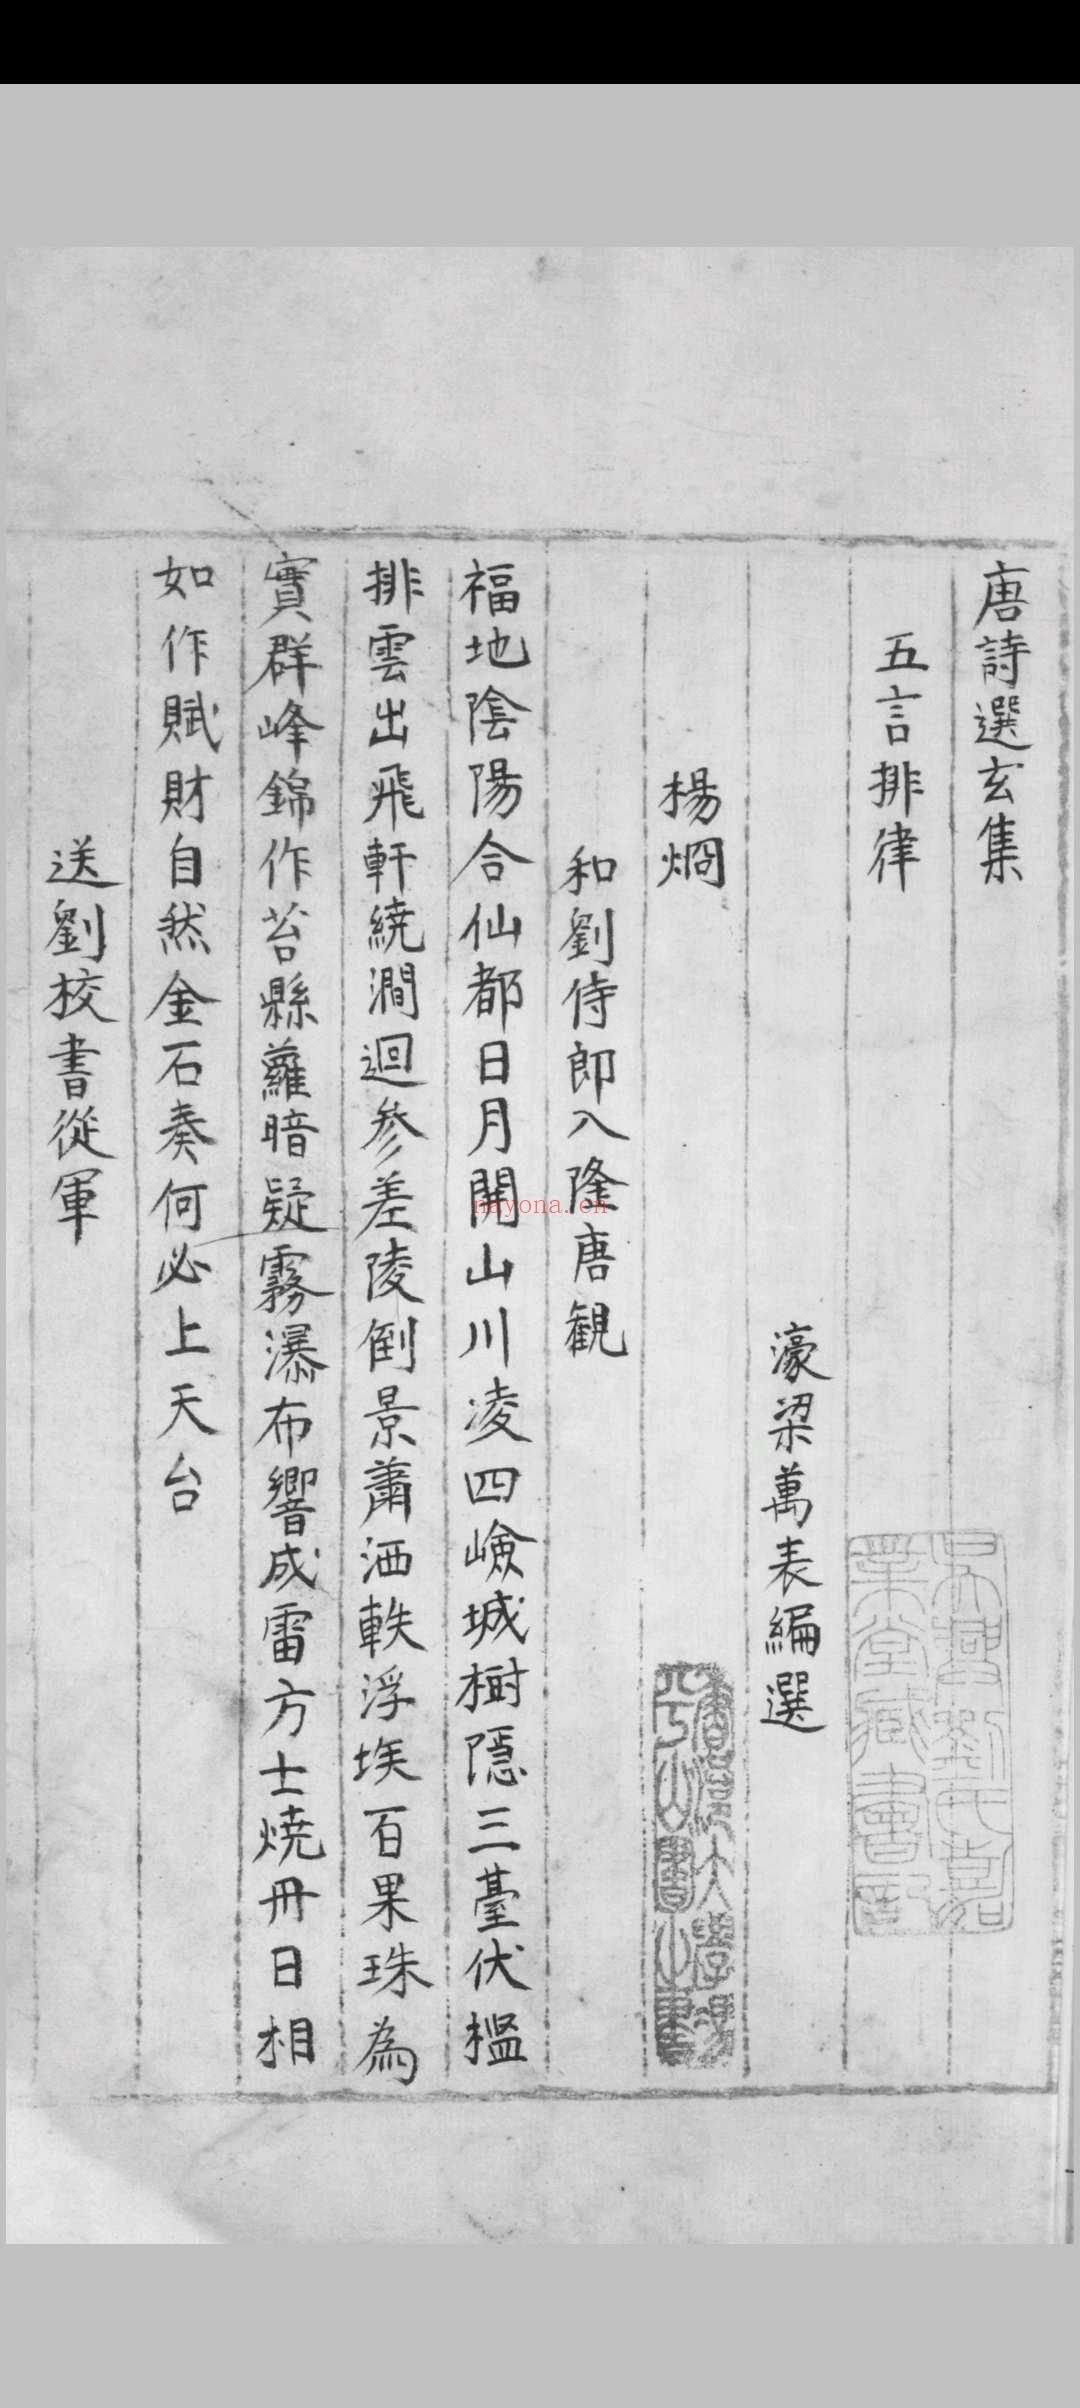 唐詩選玄集
五言排律
濠梁萬表編選
楊烱
和劉侍郎入隆唐観
福地陰陽合仙都日月開山川凌四嶮城樹隱三臺伏檻
排雲出飛軒繞澗迴參差陵倒景蕭洒軼浮埃百果珠為
實群峰錦作苔縣蘿暗疑霧瀑布響成雷方士燒丹日相
如作賦財自然金石奏何必上天台
送劉校書從軍
吳興劉氏嘉
業堂藏書印
nayona.cn